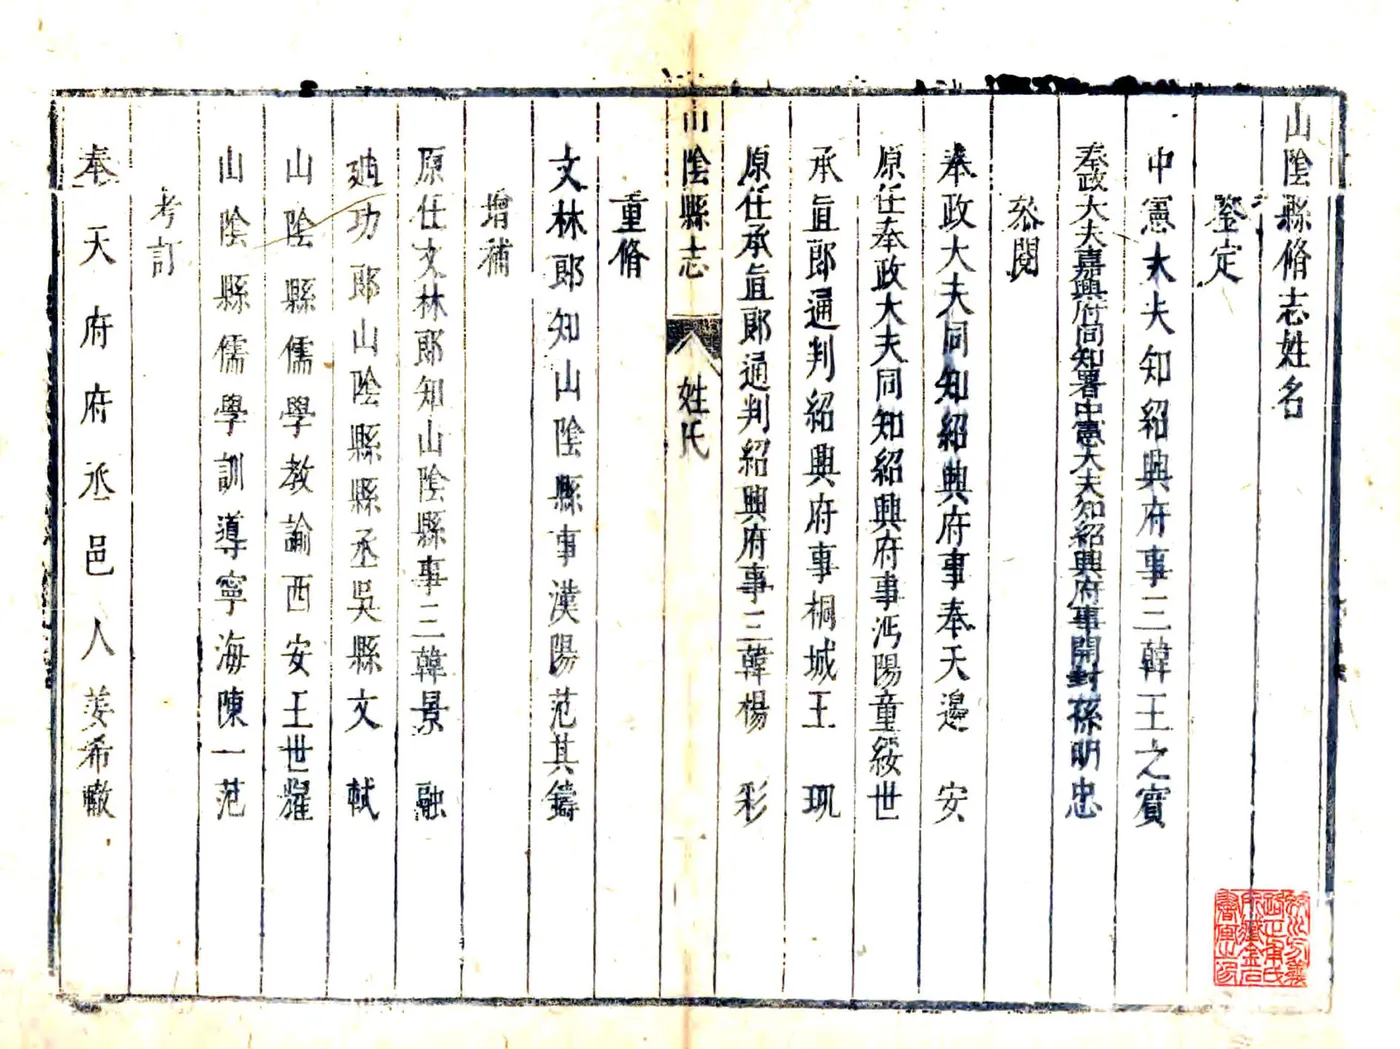 山陰縣脩志姓名
鑒定
中憲大夫知紹興府事三韓王之賓
奉政大夫嘉興府同知署中憲大夫知紹興府事開封孫明忠
叅閱
奉政大夫同知紹興府事奉天邊安
原任奉政大夫同知紹興府事沔陽童綏世
承直郎通判紹興府事桐城王珮
原任承直郎通判紹興府事三韓楊彩
山陰縣志 姓氏
重脩
文林郎知山陰縣事漢陽范其鑄
增補
原任文林郎知山陰縣事三韓景融
廸功郎山陰縣縣丞吳縣文軾
山陰縣儒學教諭西安王世耀
山陰縣儒學訓導寧海陳一范
考訂
奉天府府丞邑人姜希轍